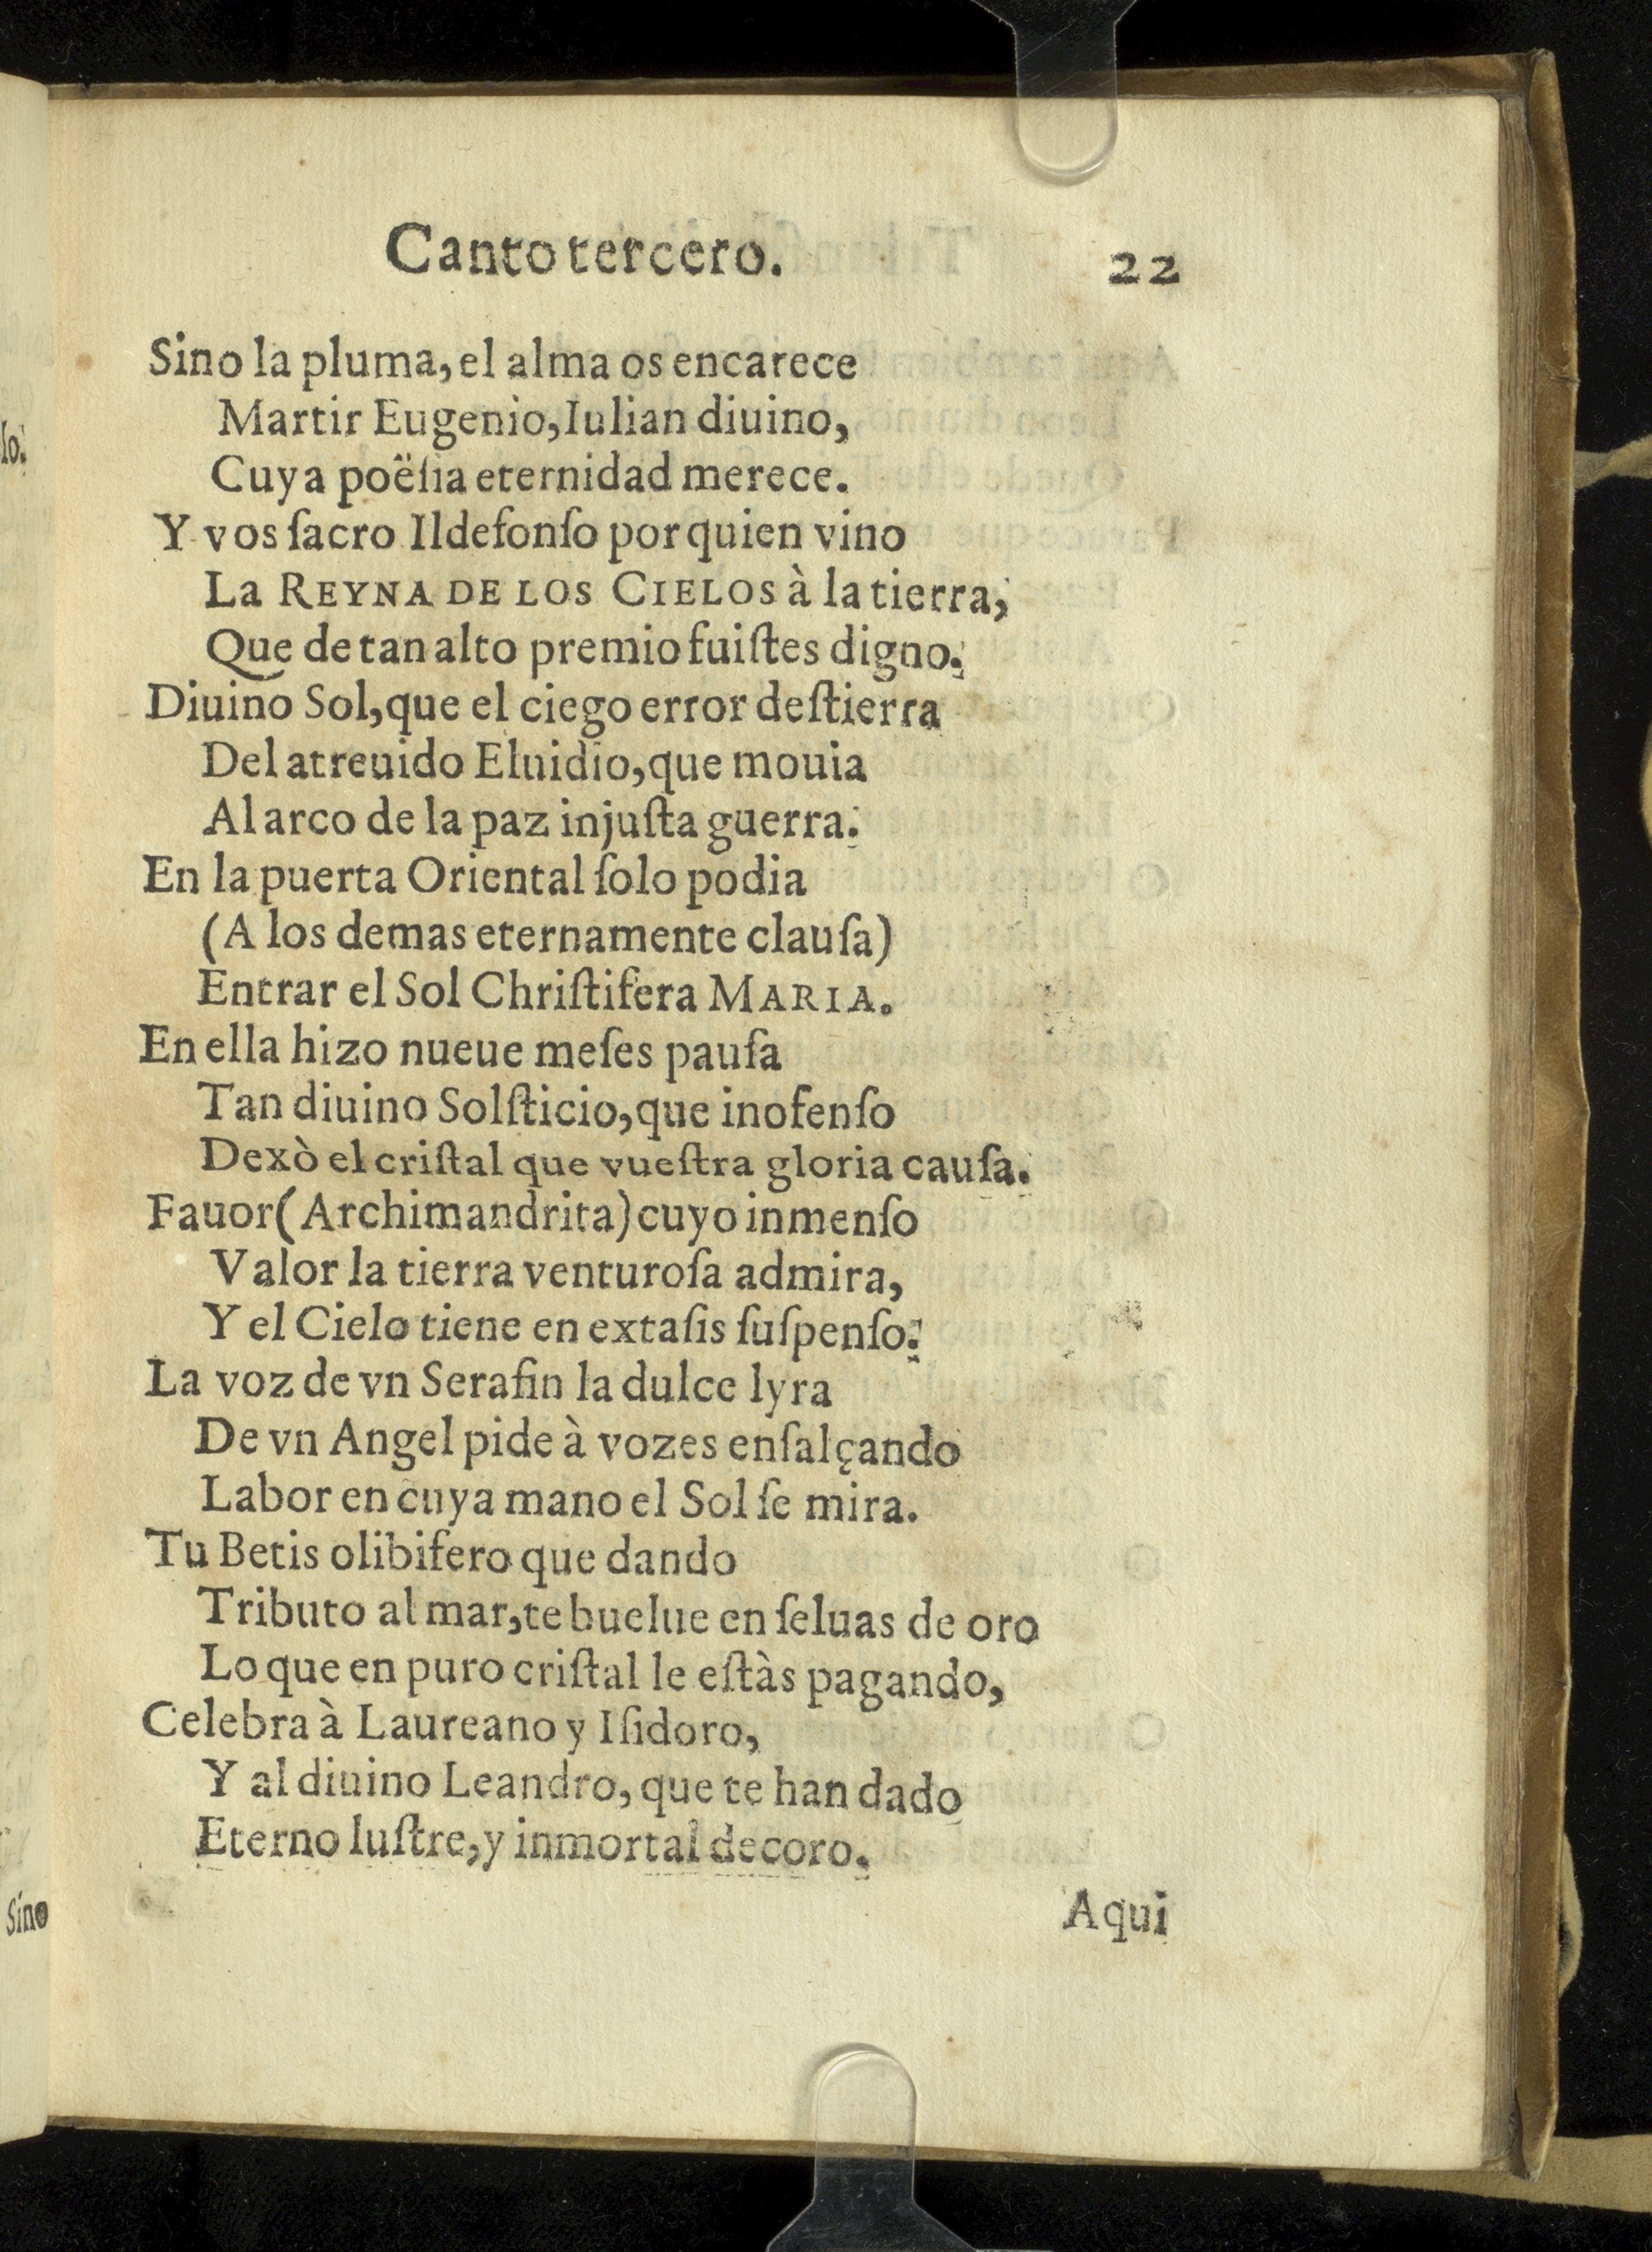 Canto tercero. 22
Sino la pluma, el alma os encarece
Martir Eugenio, Iulian diuino,
Cuya poësia eternidad merece.
Y vos ſacro Ildefonſo por quien vino
La REYNA DE LOS CIELOS à la tierra,
Que de tan alto premio fuiſtes digno.
Diuino Sol, que el ciego error deſtierra
Del atreuido Eluidio, que mouia
Al arco de la paz injuſta guerra.
En la puerta Oriental ſolo podia
(A los demas eternamente clauſa)
Entrar el Sol Chriſtifera MARIA.
En ella hizo nueue meſes pauſa
Tan diuino Solſticio, que inofenſo
Dexò el criſtal que vueſtra gloria cauſa.
Fauor (Archimandrita) cuyo inmenſo
Valor la tierra venturoſa admira,
Y el Cielo tiene en extaſis ſuſpenſo.
La voz de vn Serafin la dulce lyra
De vn Angel pide à vozes enſalçando
Labor en cuya mano el Sol ſe mira.
Tu Betis olibifero que dando
Tributo al mar, te buelue en ſeluas de oro
Lo que en puro criſtal le eſtàs pagando,
Celebra à Laureano y Iſidoro,
Y al diuino Leandro, que te han dado
Eterno luſtre, y inmortal decoro.
Aqui
ſo.
Sino